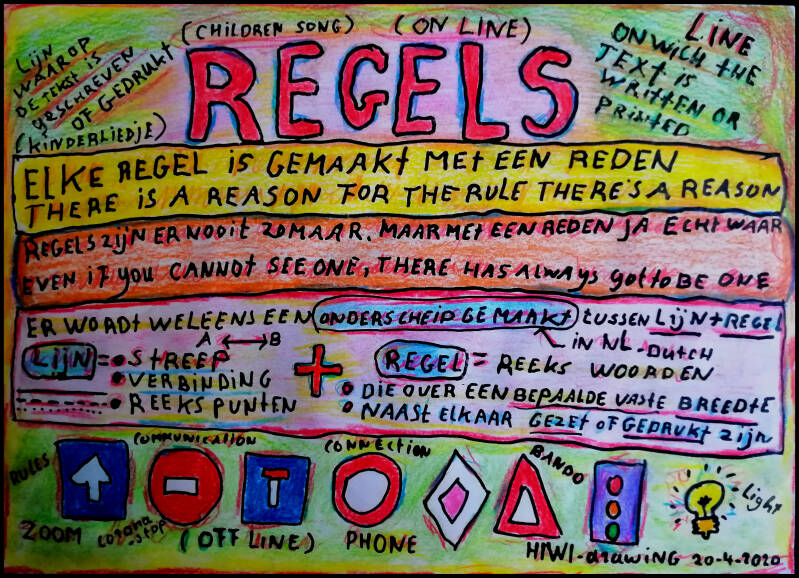 (CHILDREN SONG) (ON LINE)
REGELS
LIJN
WAAROP
DE TEKST IS
GESCHREVEN
OF GEDRUKT
(KINDERLIEDJE)
LINE
ON WICH THE
TEXT IS
WRITTEN OR
PRINTED
ELKE REGEL IS GEMAAKT MET EEN REDEN
THERE IS A REASON FOR THE RULE THERE'S A REASON
REGELS ZIJN ER NOOIT ZOMAAR. MAAR MET EEN REDEN JA ECHT WAAR
EVEN if YOU CANNOT SEE ONE, THERE HAS ALWAYS got to BE ONE
ER WORDT WELEENS EEN ONDERSCHEID GEMAAKT TUSSEN LIJN + REGEL
A ↔ B
in NL-DUTCH
LIJN = • STREEP
• VERBINDING
• REEKS PUNTEN
+
REGEL = REEKS WOORDEN
• DIE OVER EEN BEPAALDE VASTE BREEDTE
• NAAST ELKAAR GEZET OF GEDRUKT ZIJN
COMMUNICATION
CONNECTION
RULES
BANDO
Light
ZOOM
corona
-stop
(OFF LINE)
PHONE
HIWI-drawing 20-4-2020